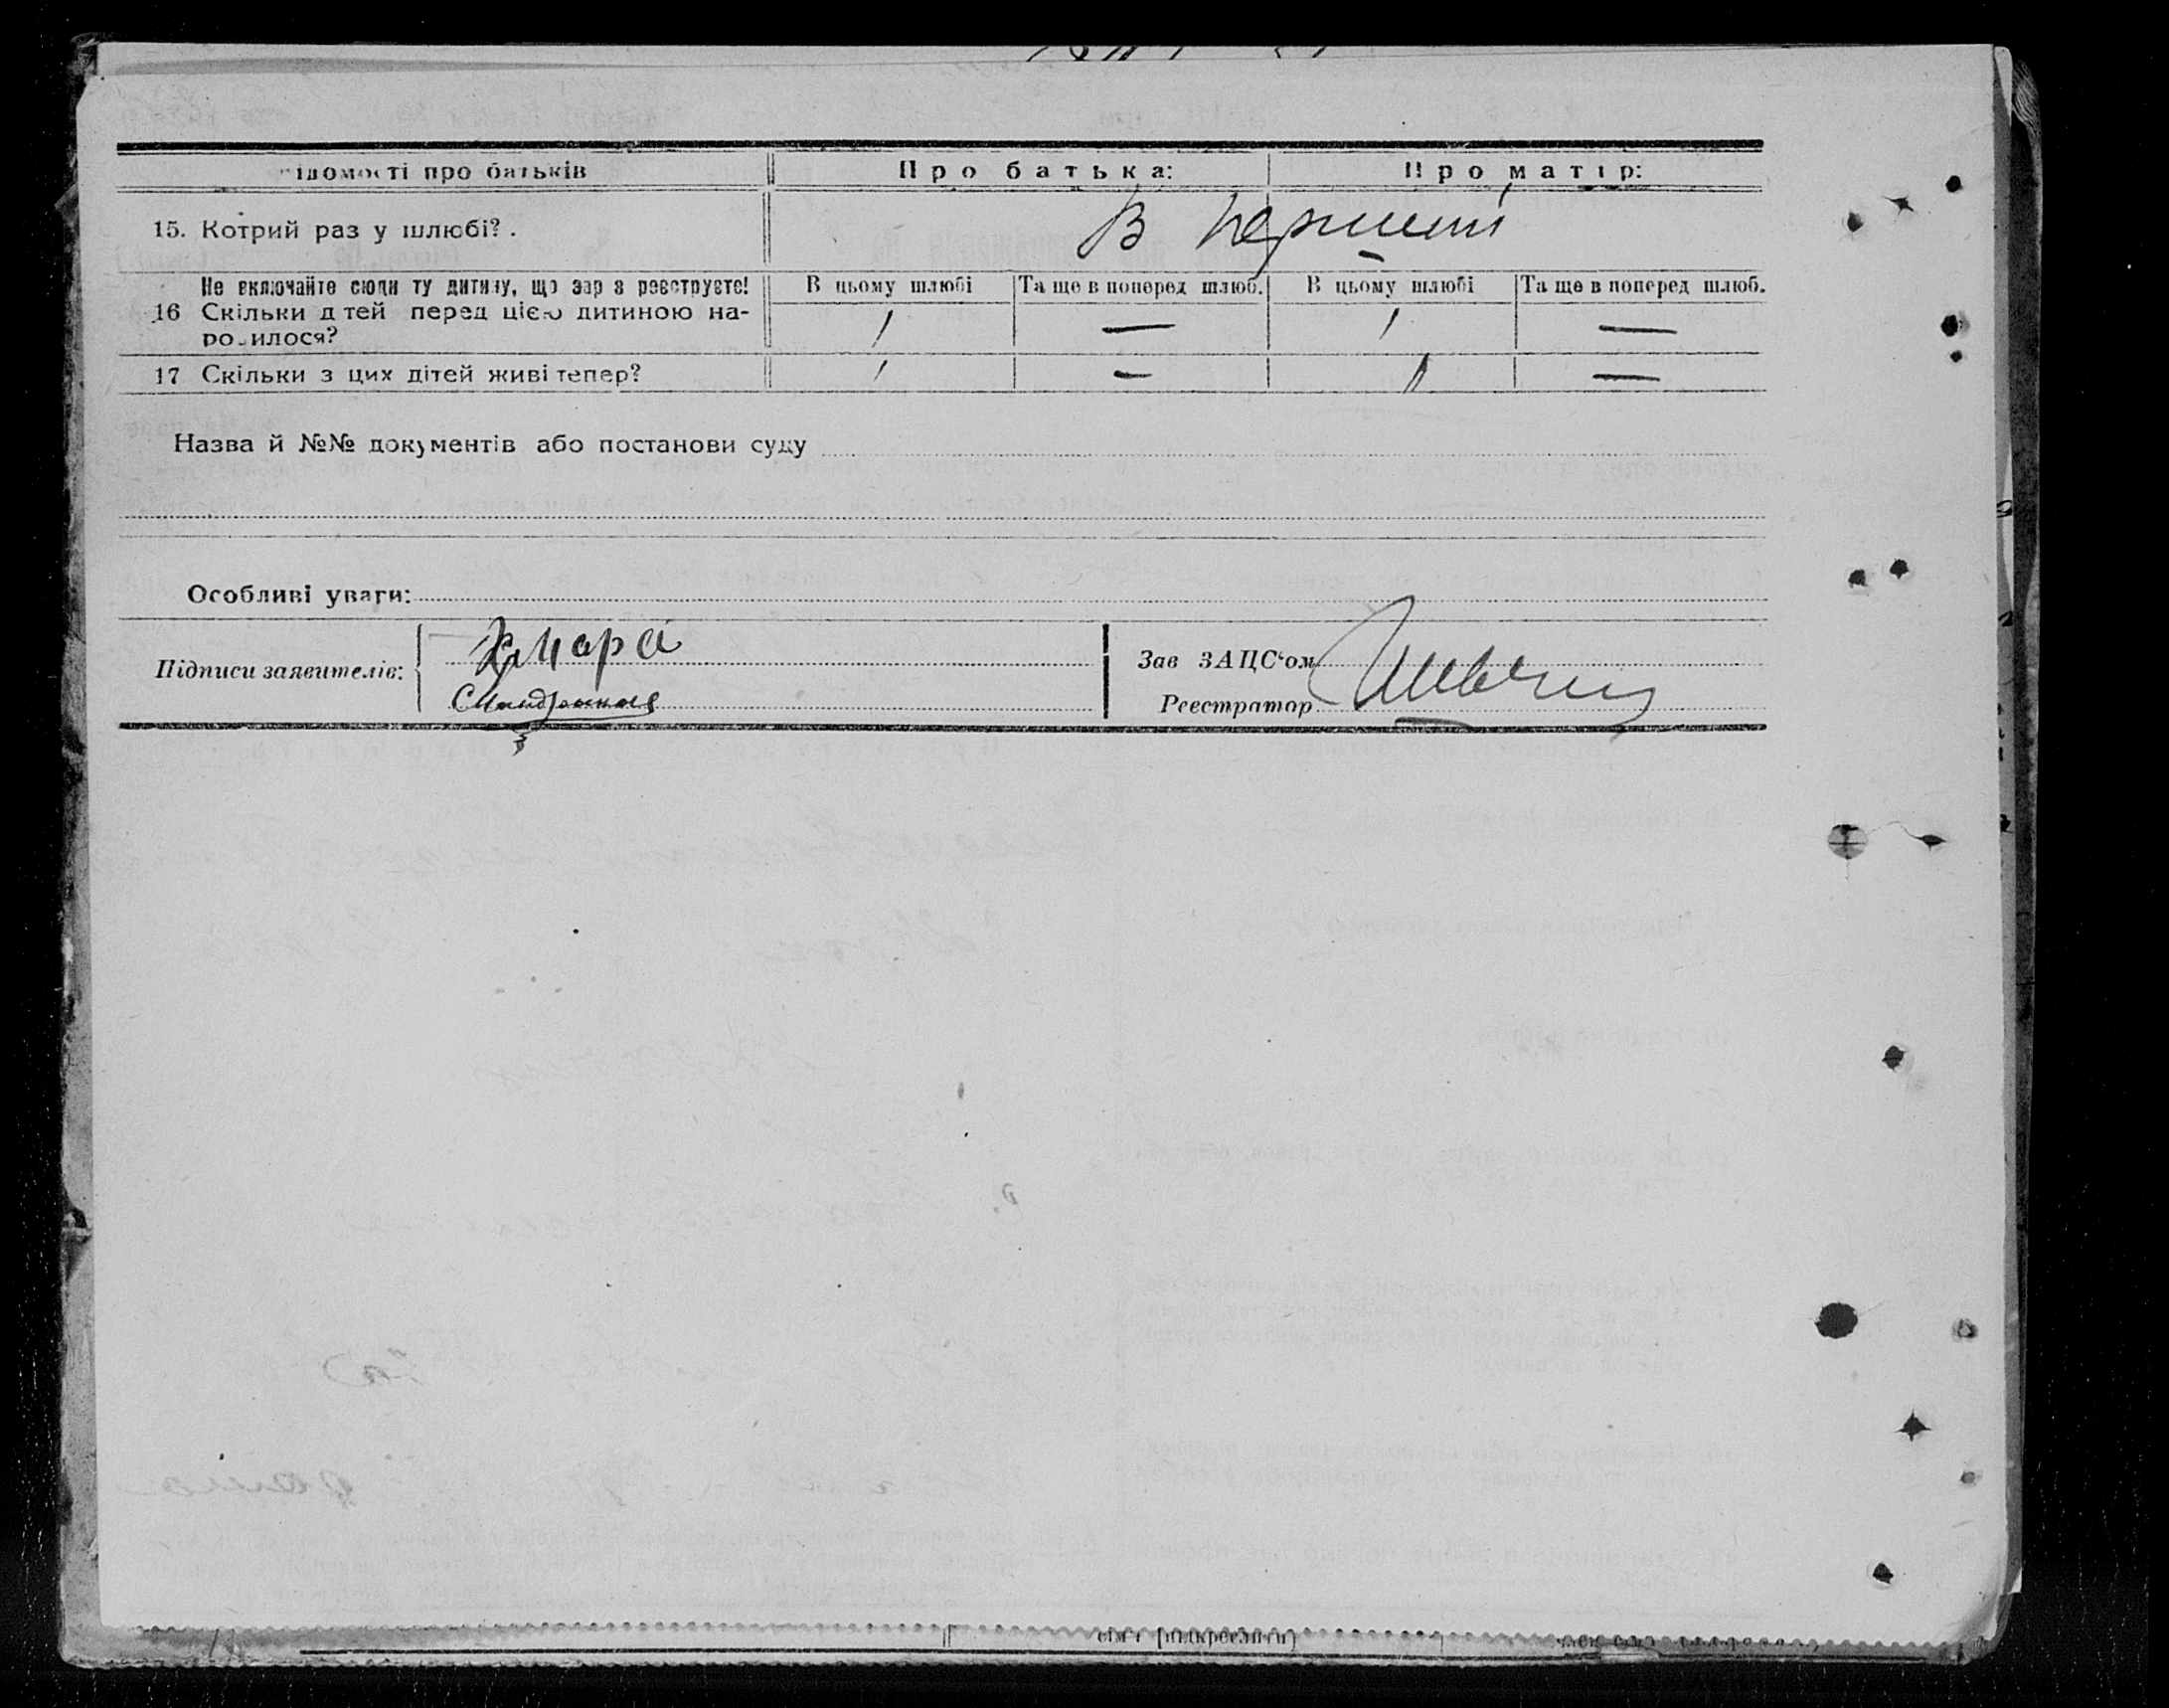 ідомості про батьків Про батька: Про матір:
15. Котрий раз у шлюбі? . В перший
Не включайте сюди ту дитину, що зар з реєструєте! В цьому шлюбі Та ще в поперед шлюб. В цьому шлюбі Та ще в поперед шлюб.
16 Скільки д тей перед цією дитиною на-
ро илося? 1 — 1 —
17 Скільки з цих дітей живі тепер? 1 — 1 —
Назва й №№ документів або постанови суду
Особливі уваги:
Підписи заявителів: Хмара
Зав ЗАЦС'ом
Реєстратор